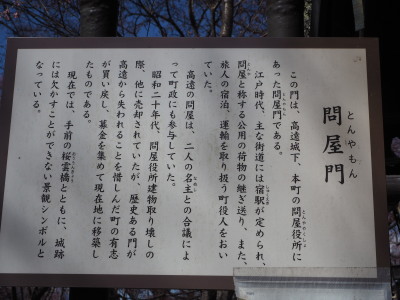 とんやもん
問屋門
この門は、高遠城下、本町の問屋役所に
あった問屋門である。
江戸時代、主な街道には宿駅が定められ、
問屋と称する公用の荷物の継ぎ送り、また、
旅人の宿泊、運輸を取り扱う町役人をおい
ていた。
高遠の問屋は、二人の名主との合議によ
って町政にも参与していた。
昭和二十年代、問屋役所建物取り壊しの
際、他に売却されていたが、歴史ある門が
高遠から失われることを惜しんだ町の有志
が買い戻し、募金を集めて現在地に移築し
たものである。
現在では、手前の桜雲橋とともに、城跡
には欠かすことができない景観シンボルと
なっている。